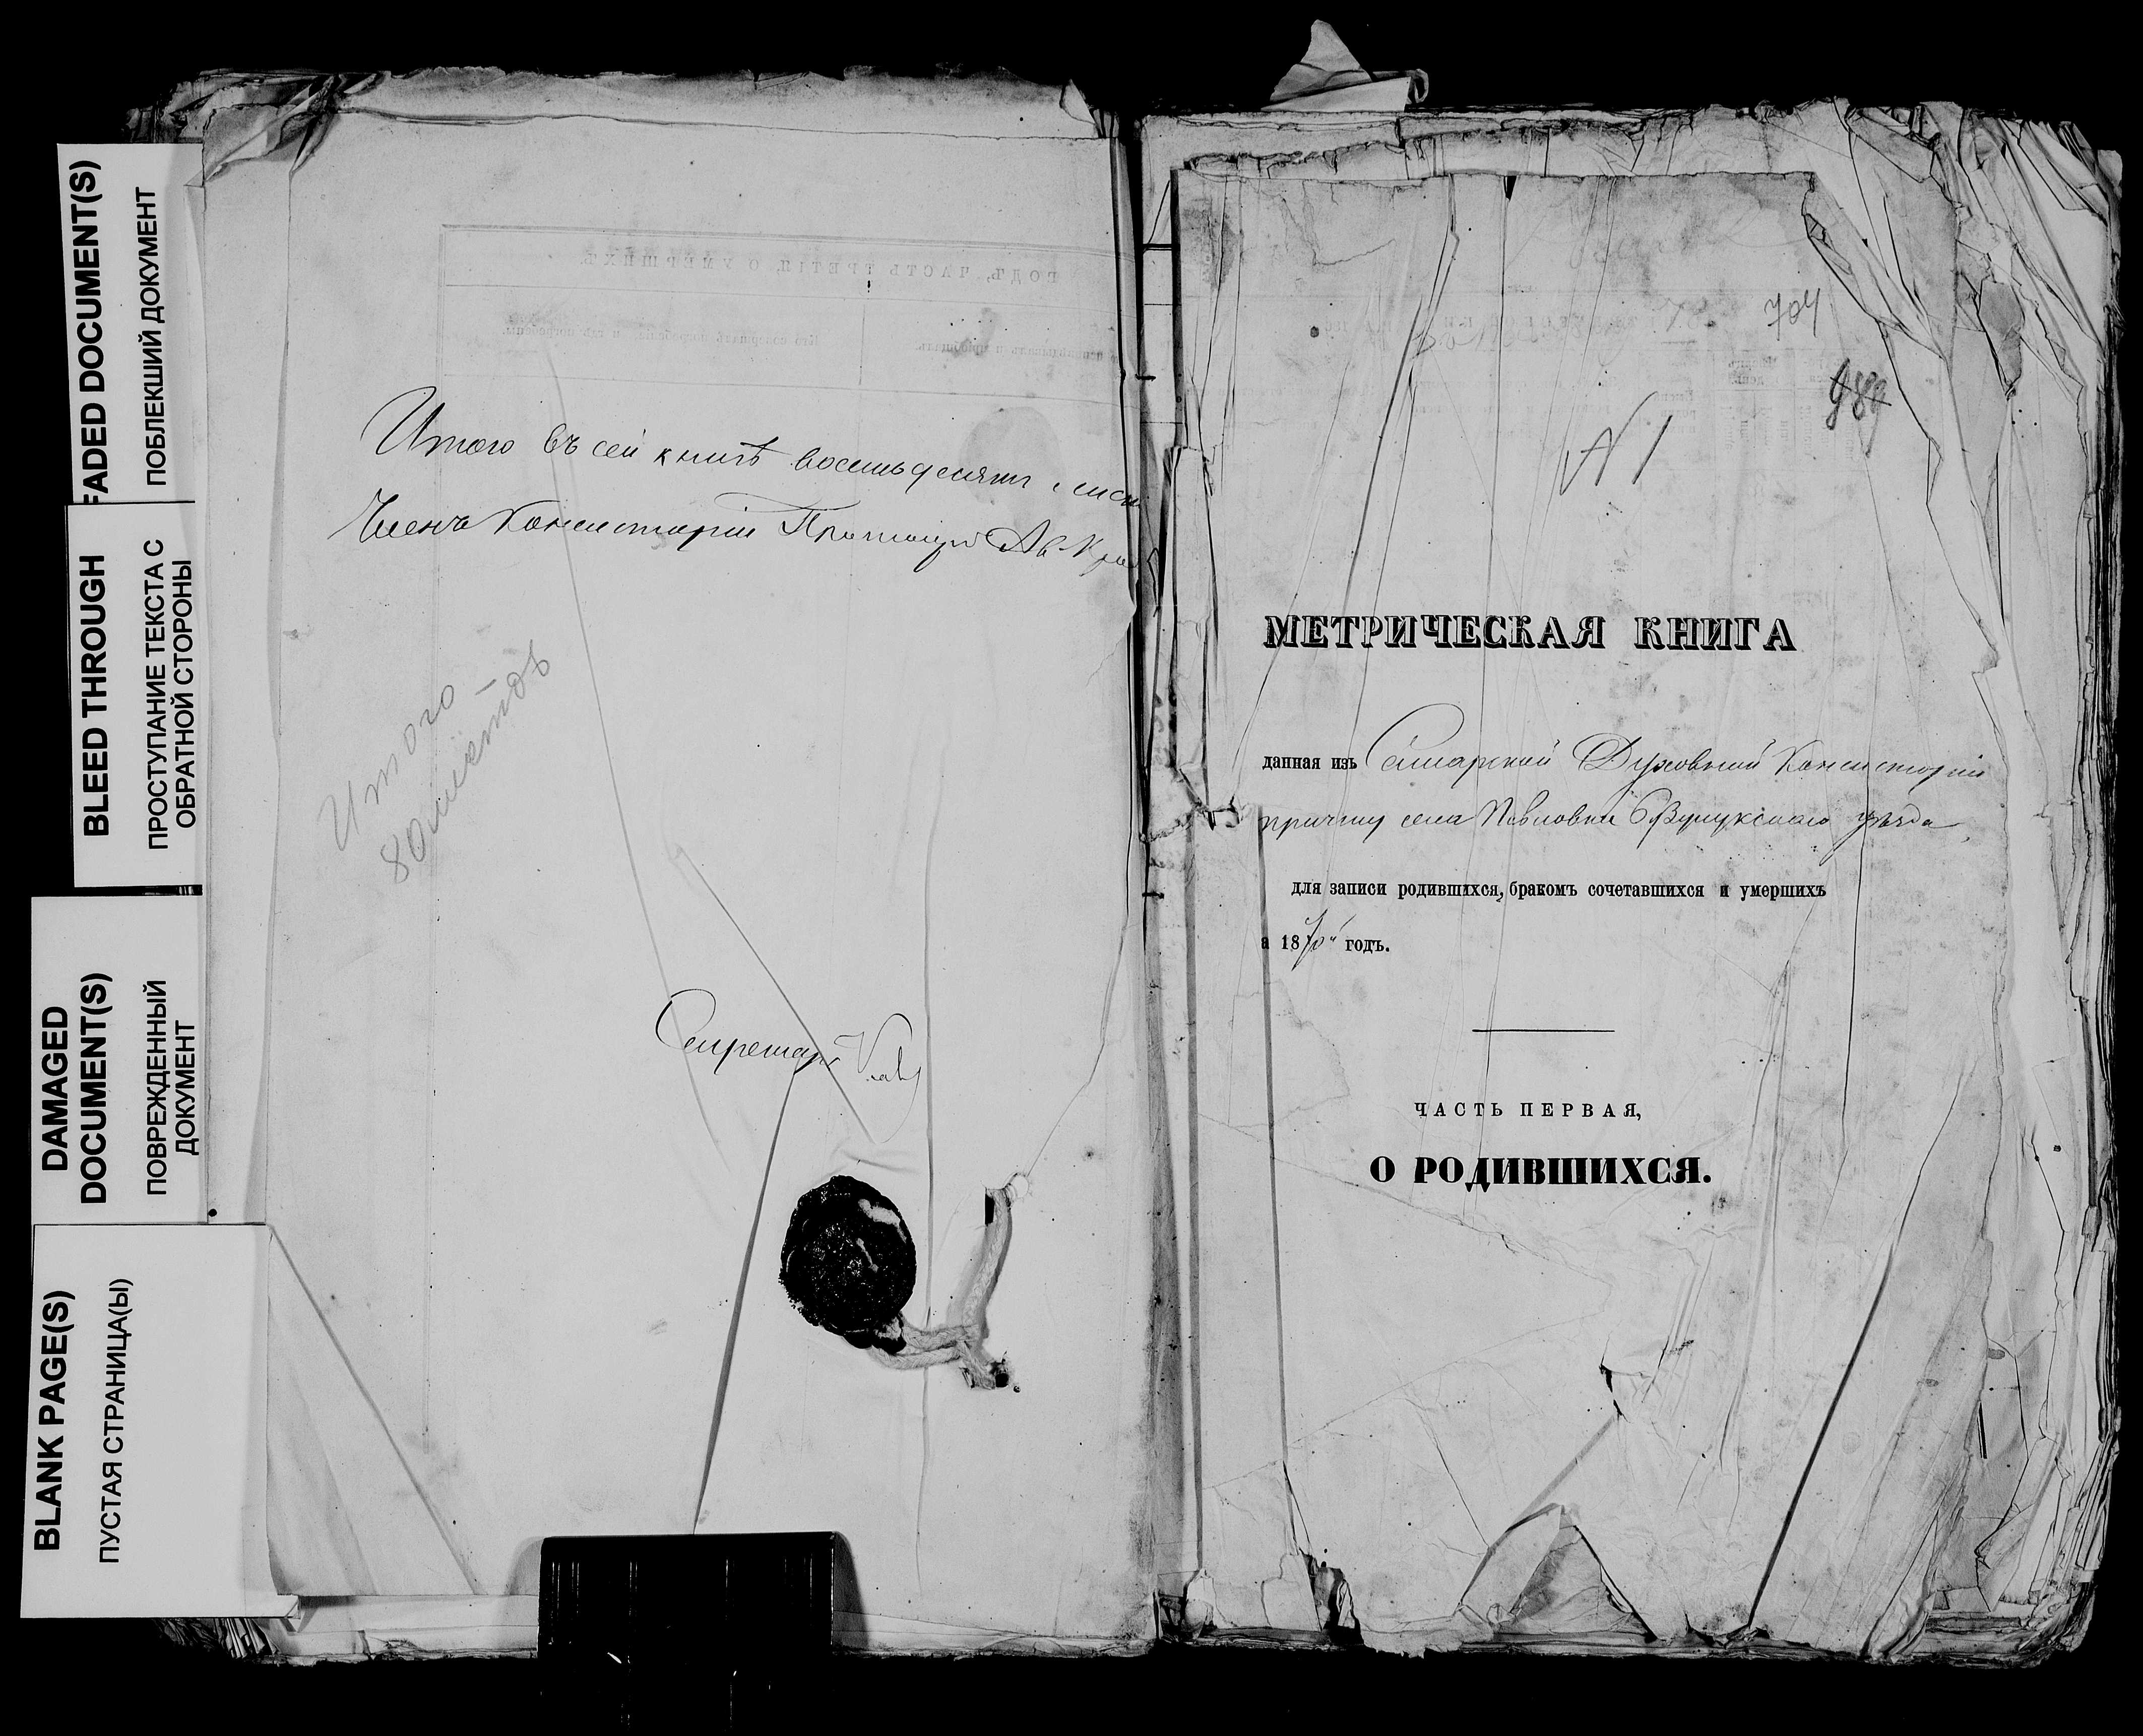 FADED DOCUMENT(S)
ПОБЛЕКШИЙ ДОКУМЕНТ
BLEED THROUGH
ПРОСТУПАНИЕ ТЕКСТА С
ОБРАТНОЙ СТОРОНЫ
DAMAGED
DOCUMENT(S)
ПОВРЕЖДЕННЫЙ
ДОКУМЕНТ
BLANK PAGE(S)
ПУСТАЯ СТРАНИЦА(Ы)
ГОДЪ, ЧАСТЬ ТРЕТІЯ, О УМЕРШИХЪ
Итого въ сей книгѣ восемьдесятъ
Членъ Консисторіи
Итого
80
Секретарь
704
989
№ 1
МЕТРИЧЕСКАЯ КНИГА
данная изъ Самарской Духовной Консисторіи
причту села Павловки Бузулукскаго уѣзда
для записи родившихся, бракомъ сочетавшихся и умершихъ
а 1870й годъ.
ЧАСТЬ ПЕРВАЯ,
О РОДИВШИХСЯ.